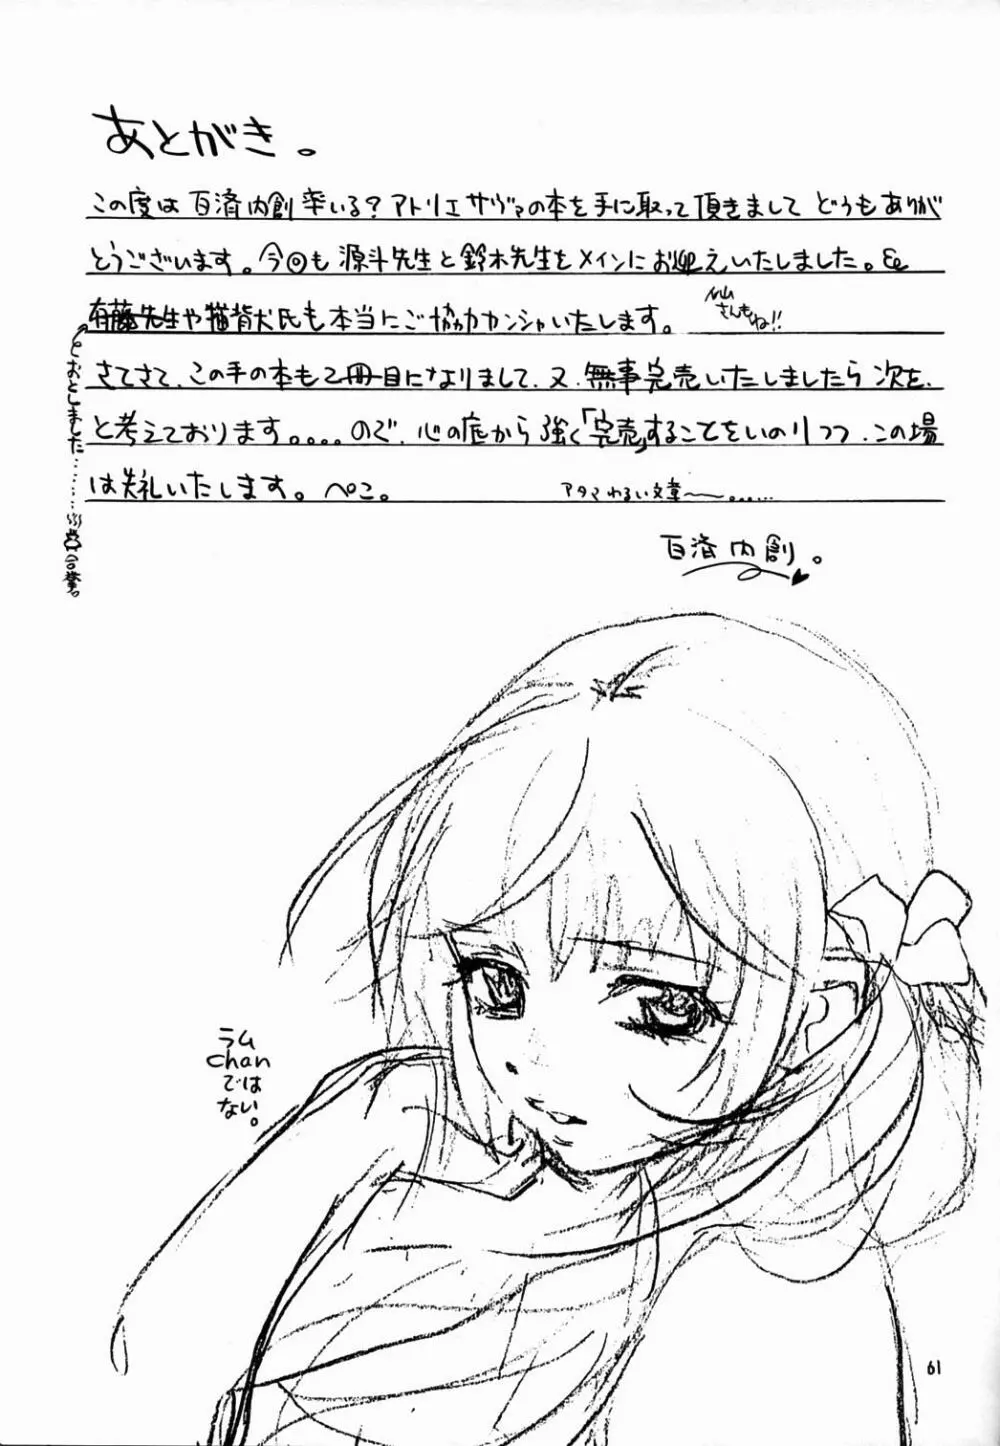 あとがき。
この度は百済内創率いる?アトリエサヴァの本を手に取って頂きましてどうもありが
とうございます。今回も源斗先生と鈴木先生をメインにお迎えいたしました。&
有藤先生や猫背犬氏も本当にご協力カンシャいたします。
さんもね!!
さてさて、この手の本も2冊目になりまして、又、無事完売いたしましたら次を、
と考えております。。。。ので、心の底から強く「完売」することをいのりつつ、この場
は失礼いたします。ぺこ。
アタマわるい文章〜〜……
おとしました………
百済内創。
ラム
chan
では
ない。
61